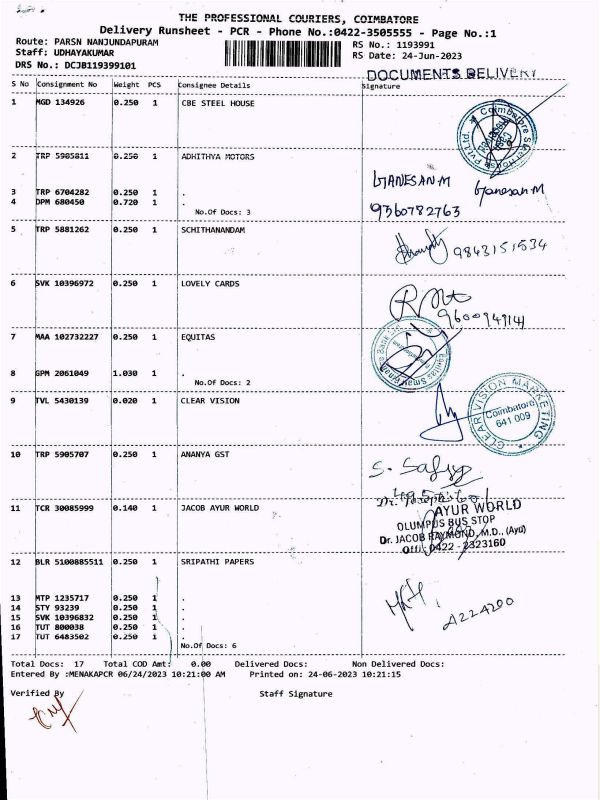 THE PROFESSIONAL COURIERS, COIMBATORE
Delivery Runsheet - PCR - Phone No.:0422-3505555 - Page No.:1
Route: PARSN NANJUNDAPURAM
RS No.: 1193991
Staff: UDHAYAKUMAR
RS Date: 24-Jun-2023
DRS No.: DCJB119399101
DOCUMENTS DELIVERY
S No Consignment No Weight PCS Consignee Details Signature
1 MGD 134926 0.250 1 CBE STEEL HOUSE
2 TRP 5905811 0.250 1 ADHITHYA MOTORS
GANESAN M Ganesan M
3 TRP 6704282 0.250 1 .
4 DPM 680450 0.720 1 .
9360782763
No.Of Docs: 3
5 TRP 5881262 0.250 1 SCHITHANANDAM
9843151534
6 SVK 10396972 0.250 1 LOVELY CARDS
7 MAA 102732227 0.250 1 EQUITAS
8 GPM 2061049 1.030 1 .
No.Of Docs: 2
9 TVL 5430139 0.020 1 CLEAR VISION
CLEAR VISION MARKETING
Coimbatore
641 009
10 TRP 5905707 0.250 1 ANANYA GST
11 TCR 30085999 0.140 1 JACOB AYUR WORLD
AYUR WORLD
OLUMPUS BUS STOP
Dr. JACOB RAYMOND, M.D., (Ayu)
Off: 0422 - 2323160
12 BLR 5100885511 0.250 1 SRIPATHI PAPERS
13 MTP 1235717 0.250 1 .
14 STY 93239 0.250 1 .
15 SVK 10396832 0.250 1 .
16 TUT 800038 0.250 1 .
17 TUT 6483502 0.250 1 .
No.Of Docs: 6
Total Docs: 17 Total COD Amt: 0.00 Delivered Docs: Non Delivered Docs:
Entered By :MENAKAPCR 06/24/2023 10:21:00 AM Printed on: 24-06-2023 10:21:15
Verified By Staff Signature